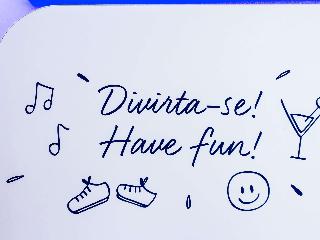 Divirta-se!
Have fun!